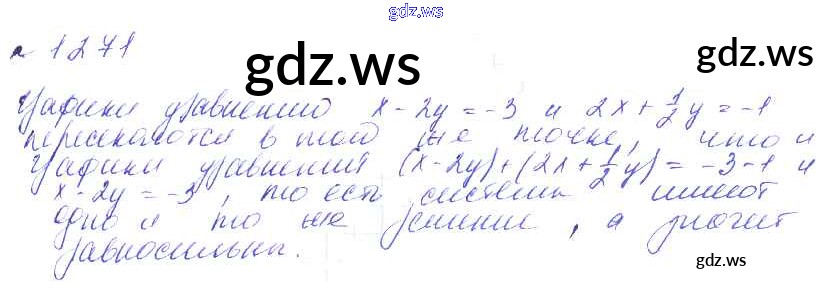 gdz.ws
№ 1271
gdz.ws
gdz.ws
Графики уравнений x - 2y = -3 и 2x + 1/2 y = -1
пересекаются в той же точке, что и
графики уравнения (x - 2y) + (2x + 1/2 y) = -3 - 1 и
x - 2y = -3, то есть системы имеют
одно и то же решение, а значит
равносильны.
gdz.ws
gdz.ws